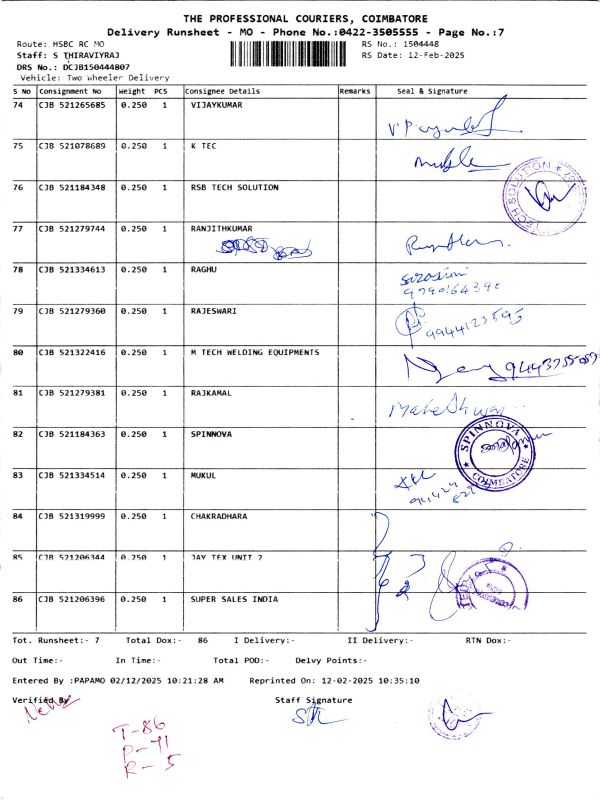 THE PROFESSIONAL COURIERS, COIMBATORE
Delivery Runsheet - MO - Phone No.:0422-3505555 - Page No.:7
Route: HSBC RC MO RS No.: 1504448
Staff: S THIRAVIYRAJ RS Date: 12-Feb-2025
DRS No.: DCJB150444807
Vehicle: Two Wheeler Delivery
S No Consignment No Weight PCS Consignee Details Remarks Seal & Signature
74 CJB 521265685 0.250 1 VIJAYKUMAR
75 CJB 521078689 0.250 1 K TEC
76 CJB 521184348 0.250 1 RSB TECH SOLUTION TECH SOLUTION
77 CJB 521279744 0.250 1 RANJITHKUMAR
78 CJB 521334613 0.250 1 RAGHU
9790164390
79 CJB 521279360 0.250 1 RAJESWARI
9944123595
80 CJB 521322416 0.250 1 M TECH WELDING EQUIPMENTS
81 CJB 521279381 0.250 1 RAJKAMAL
82 CJB 521184363 0.250 1 SPINNOVA SPINNOVA COIMBATORE
83 CJB 521334514 0.250 1 MUKUL
84 CJB 521319999 0.250 1 CHAKRADHARA
85 CJB 521206344 0.250 1 JAY TEX UNIT 2
86 CJB 521206396 0.250 1 SUPER SALES INDIA
Tot. Runsheet:- 7 Total Dox:- 86 I Delivery:- II Delivery:- RTN Dox:-
Out Time:- In Time:- Total POD:- Delvy Points:-
Entered By :PAPAMO 02/12/2025 10:21:28 AM Reprinted On: 12-02-2025 10:35:10
Verified By Staff Signature
T-86
D-71
R-5